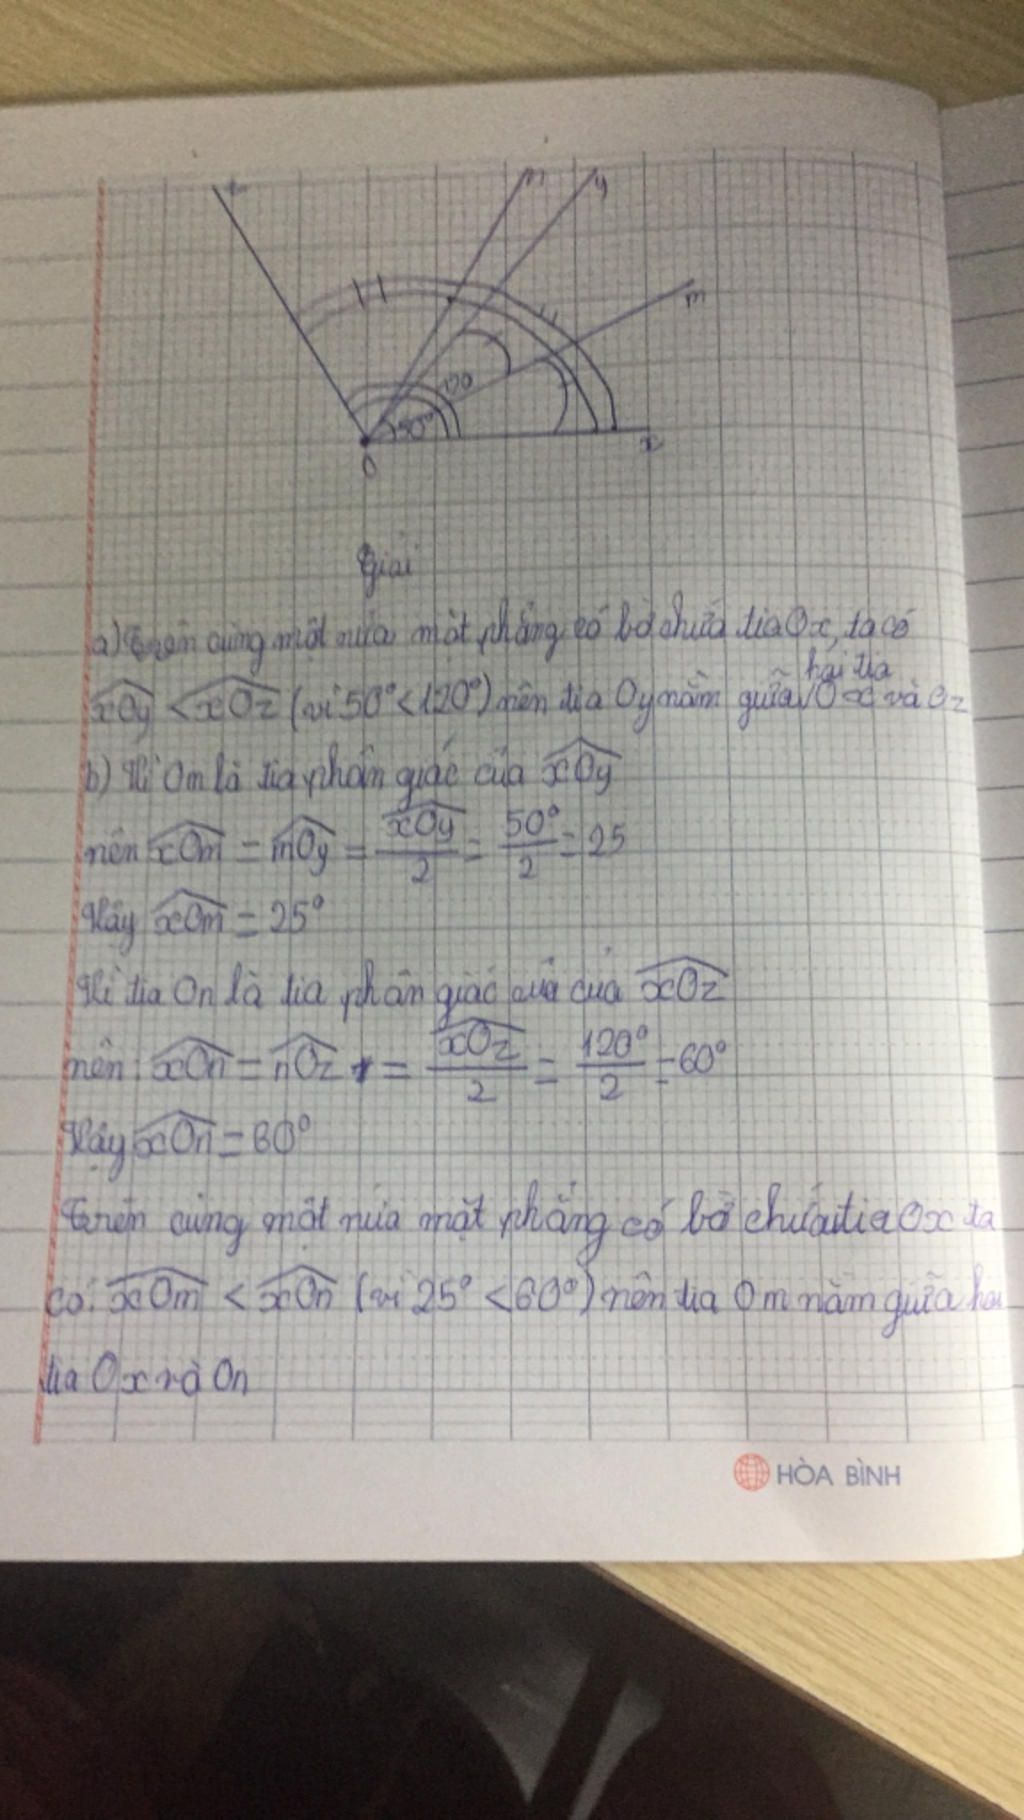 z n y
m
120
50°
x
O
Giải
a) Trên cùng một nửa mặt phẳng có bờ chứa tia Ox, ta có
hai tia
xOy < xOz (vì 50° < 120°) nên tia Oy nằm giữa Ox và Oz
b) Vì Om là tia phân giác của xOy
nên xOm = mOy = xOy/2 = 50°/2 = 25
Vậy xOm = 25°
Vì tia On là tia phân giác của của xOz
nên: xOn = nOz = xOz/2 = 120°/2 = 60°
Vậy xOn = 60°
Trên cùng một nửa mặt phẳng có bờ chứa tia Ox ta
có: xOm < xOn (vì 25° < 60°) nên tia Om nằm giữa hai
tia Ox và On
HÒA BÌNH